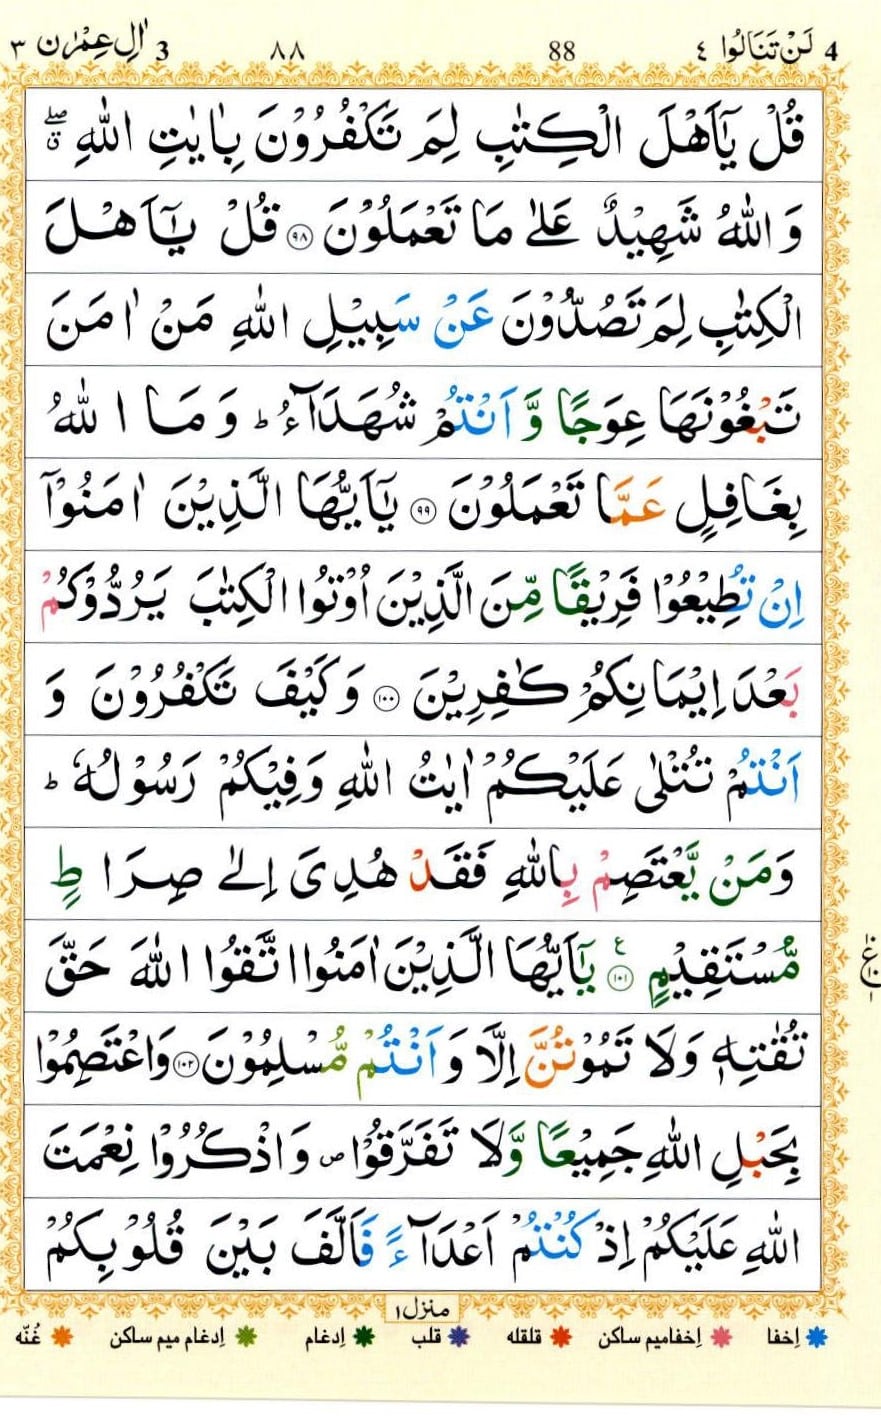 3 اٰلِ عِمْرٰن ٣ ٨٨ 88 4 لَنْ تَنَالُوا ٤
قُلْ يٰۤاَهْلَ الْكِتٰبِ لِمَ تَكْفُرُوْنَ بِاٰيٰتِ اللّٰهِ ۖۗ
وَ اللّٰهُ شَهِيْدٌ عَلٰى مَا تَعْمَلُوْنَ ﴿٩٨﴾ قُلْ يٰۤاَهْلَ
الْكِتٰبِ لِمَ تَصُدُّوْنَ عَنْ سَبِيْلِ اللّٰهِ مَنْ اٰمَنَ
تَبْغُوْنَهَا عِوَجًا وَّ اَنْتُمْ شُهَدَآءُ ؕ وَ مَا اللّٰهُ
بِغَافِلٍ عَمَّا تَعْمَلُوْنَ ﴿٩٩﴾ يٰۤاَيُّهَا الَّذِيْنَ اٰمَنُوْۤا
اِنْ تُطِيْعُوْا فَرِيْقًا مِّنَ الَّذِيْنَ اُوْتُوا الْكِتٰبَ يَرُدُّوْكُمْ
بَعْدَ اِيْمَانِكُمْ كٰفِرِيْنَ ﴿١٠٠﴾ وَ كَيْفَ تَكْفُرُوْنَ وَ
اَنْتُمْ تُتْلٰى عَلَيْكُمْ اٰيٰتُ اللّٰهِ وَ فِيْكُمْ رَسُوْلُهٗ ؕ
وَ مَنْ يَّعْتَصِمْ بِاللّٰهِ فَقَدْ هُدِيَ اِلٰى صِرَاطٍ
مُّسْتَقِيْمٍ ﴿١٠١﴾ ع يٰۤاَيُّهَا الَّذِيْنَ اٰمَنُوا اتَّقُوا اللّٰهَ حَقَّ
تُقٰتِهٖ وَ لَا تَمُوْتُنَّ اِلَّا وَ اَنْتُمْ مُّسْلِمُوْنَ ﴿١٠٢﴾ وَ اعْتَصِمُوْا
بِحَبْلِ اللّٰهِ جَمِيْعًا وَّ لَا تَفَرَّقُوْا ۪ وَ اذْكُرُوْا نِعْمَتَ
اللّٰهِ عَلَيْكُمْ اِذْ كُنْتُمْ اَعْدَآءً فَاَلَّفَ بَيْنَ قُلُوْبِكُمْ
منزل١
اِخفا اِخفامیم ساکن قلقله قلب اِدغام اِدغام میم ساکن غُنّه